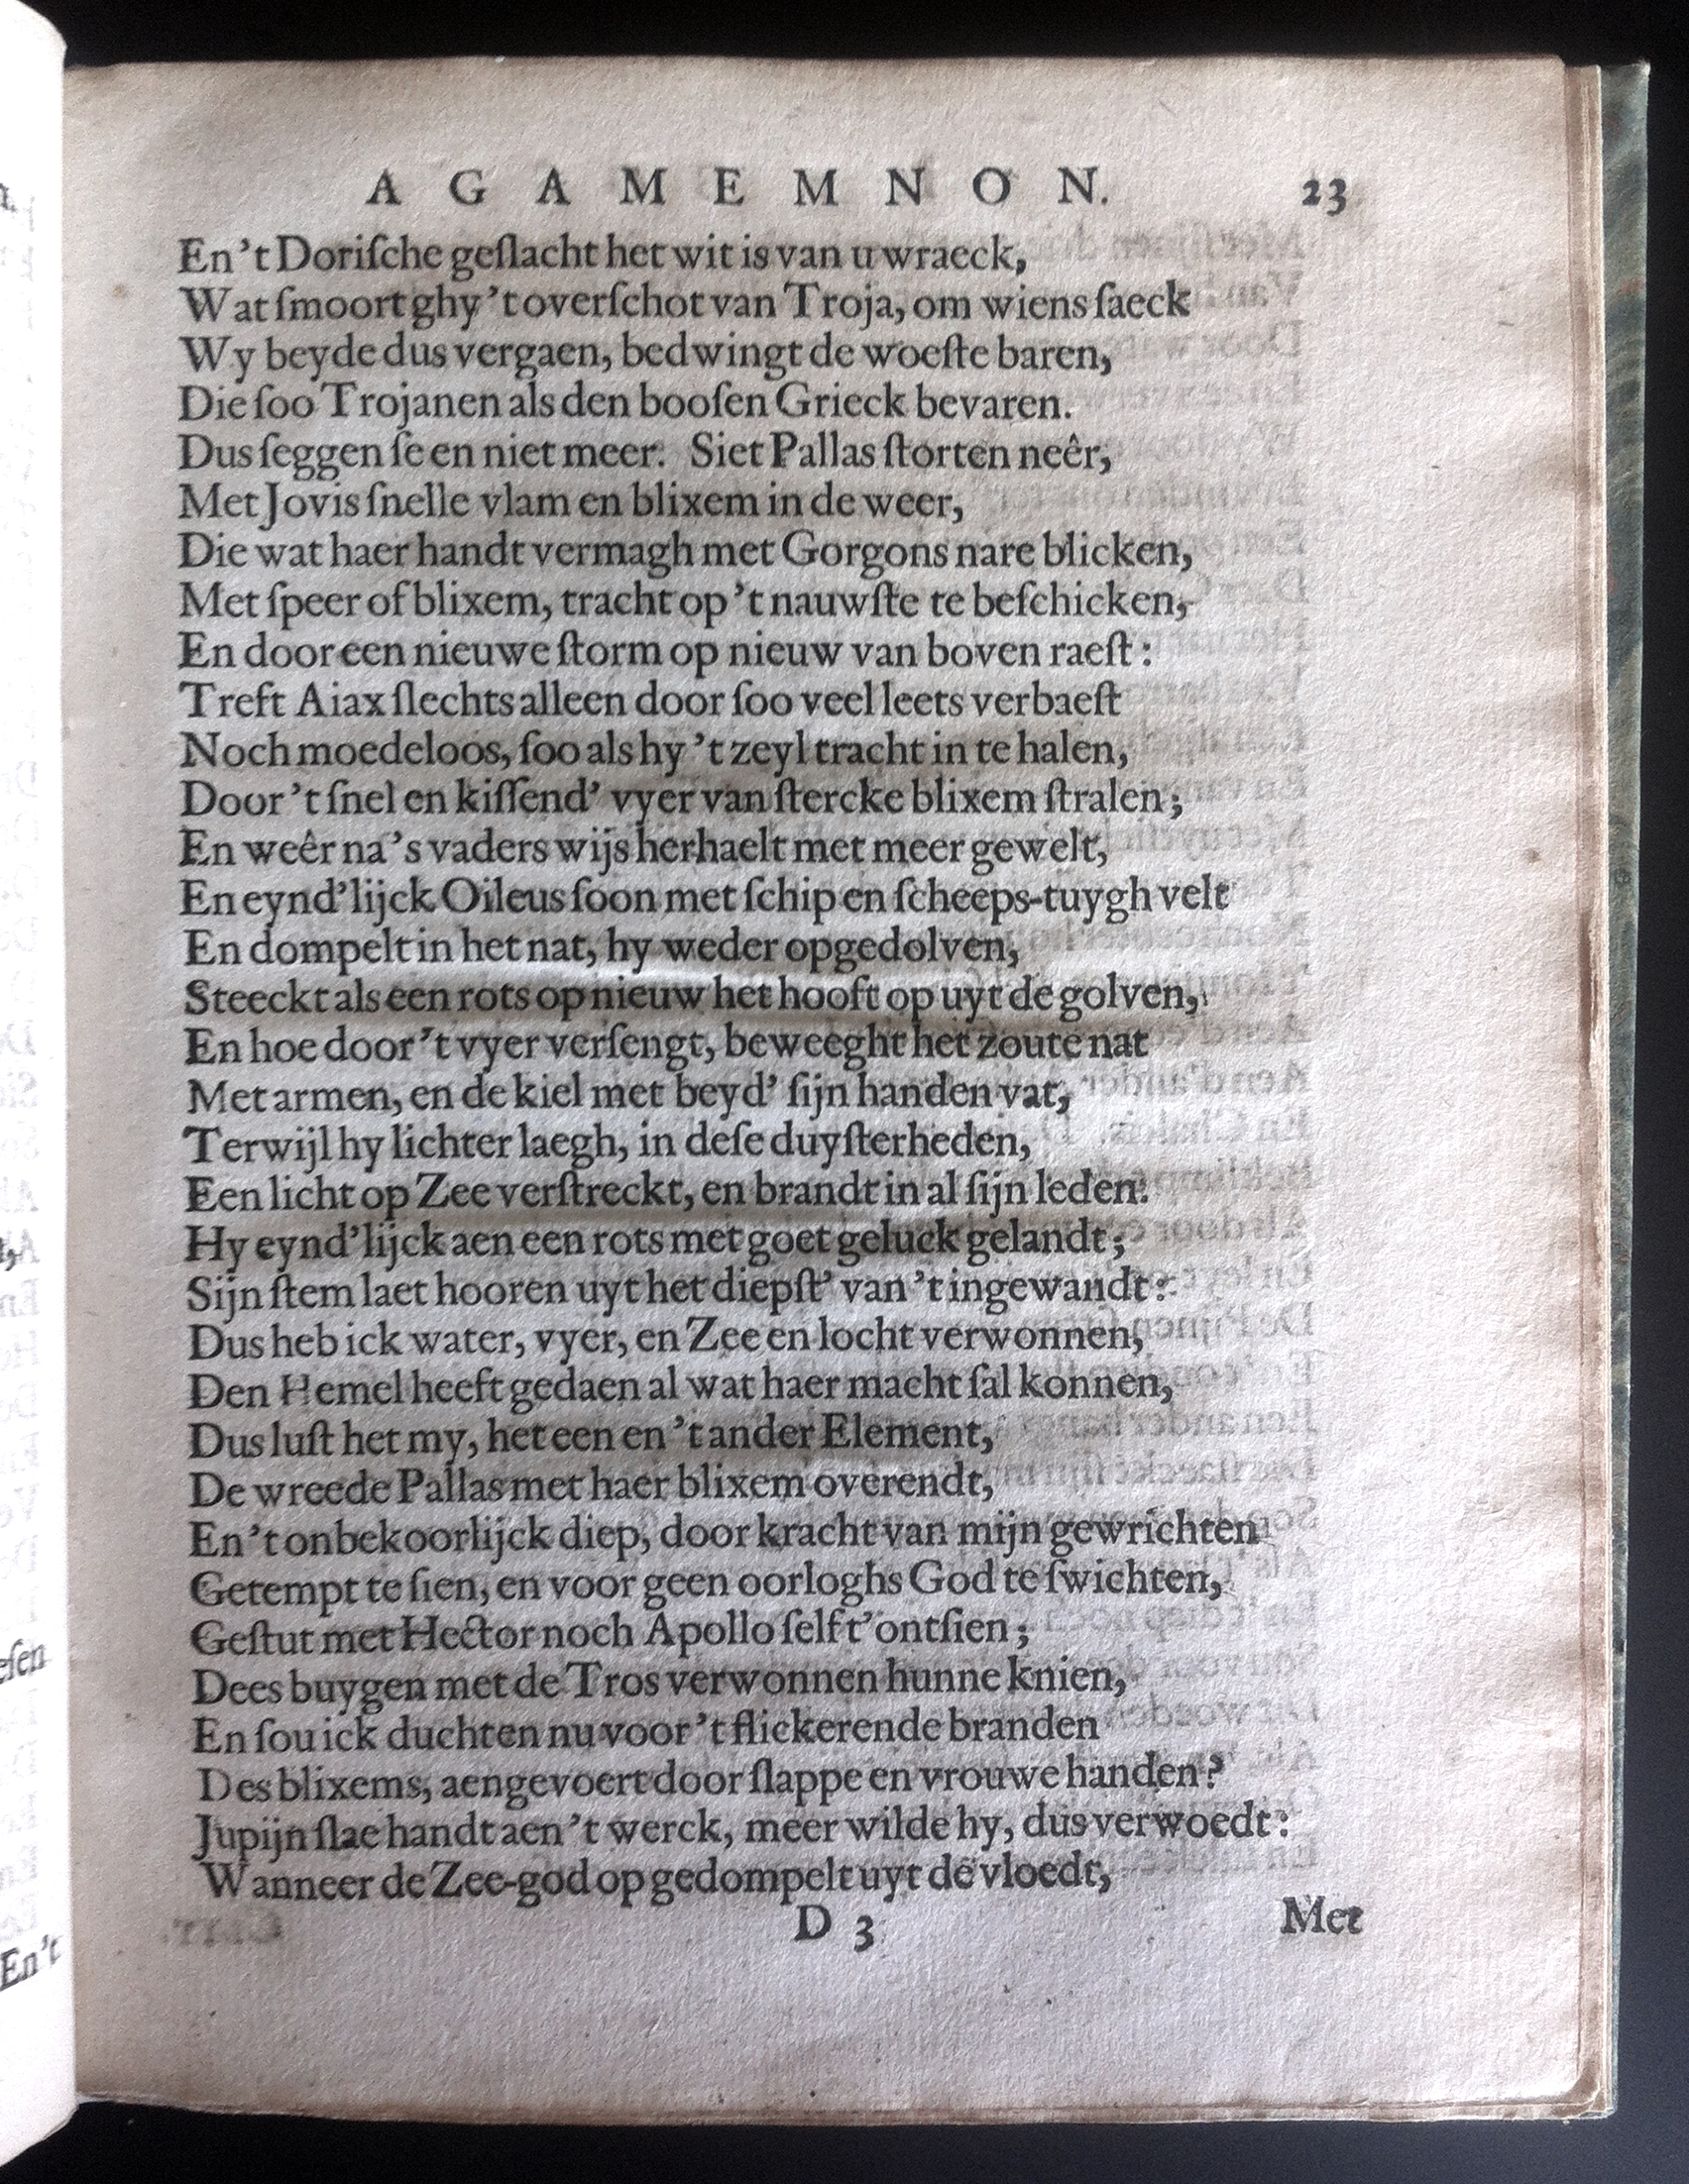 AGAMEMNON. 23
En 't Doriſche geſlacht het wit is van u wraeck,
Wat ſmoort ghy 't overſchot van Troja, om wiens ſaeck
Wy beyde dus vergaen, bedwingt de woeſte baren,
Die ſoo Trojanen als den booſen Grieck bevaren.
Dus ſeggen ſe en niet meer. Siet Pallas ſtorten neêr,
Met Jovis ſnelle vlam en blixem in de weer,
Die wat haer handt vermagh met Gorgons nare blicken,
Met ſpeer of blixem, tracht op 't nauwſte te beſchicken,
En door een nieuwe ſtorm op nieuw van boven raeſt:
Treft Aiax ſlechts alleen door ſoo veel leets verbaeſt
Noch moedeloos, ſoo als hy 't zeyl tracht in te halen,
Door 't ſnel en kiſſend' vyer van ſtercke blixem ſtralen;
En weêr na 's vaders wijs herhaelt met meer gewelt,
En eynd'lijck Oileus ſoon met ſchip en ſcheeps-tuygh velt
En dompelt in het nat, hy weder opgedolven,
Steeckt als een rots op nieuw het hooft op uyt de golven,
En hoe door 't vyer verſengt, beweeght het zoute nat
Met armen, en de kiel met beyd' ſijn handen vat,
Terwijl hy lichter laegh, in deſe duyſterheden,
Een licht op Zee verſtreckt, en brandt in al ſijn leden.
Hy eynd'lijck aen een rots met goet geluck gelandt;
Sijn ſtem laet hooren uyt het diepſt' van 't ingewandt:
Dus heb ick water, vyer, en Zee en locht verwonnen,
Den Hemel heeft gedaen al wat haer macht ſal konnen,
Dus luſt het my, het een en 't ander Element,
De wreede Pallas met haer blixem overendt,
En 't onbekoorlijck diep, door kracht van mijn gewrichten
Getempt te ſien, en voor geen oorloghs God te ſwichten,
Geſtut met Hector noch Apollo ſelf t' ontſien;
Dees buygen met de Tros verwonnen hunne knien,
En ſou ick duchten nu voor 't flickerende branden
Des blixems, aengevoert door ſlappe en vrouwe handen?
Jupijn ſlae handt aen 't werck, meer wilde hy, dus verwoedt:
Wanneer de Zee-god opgedompelt uyt de vloedt,
D 3 Met
eſen
En't